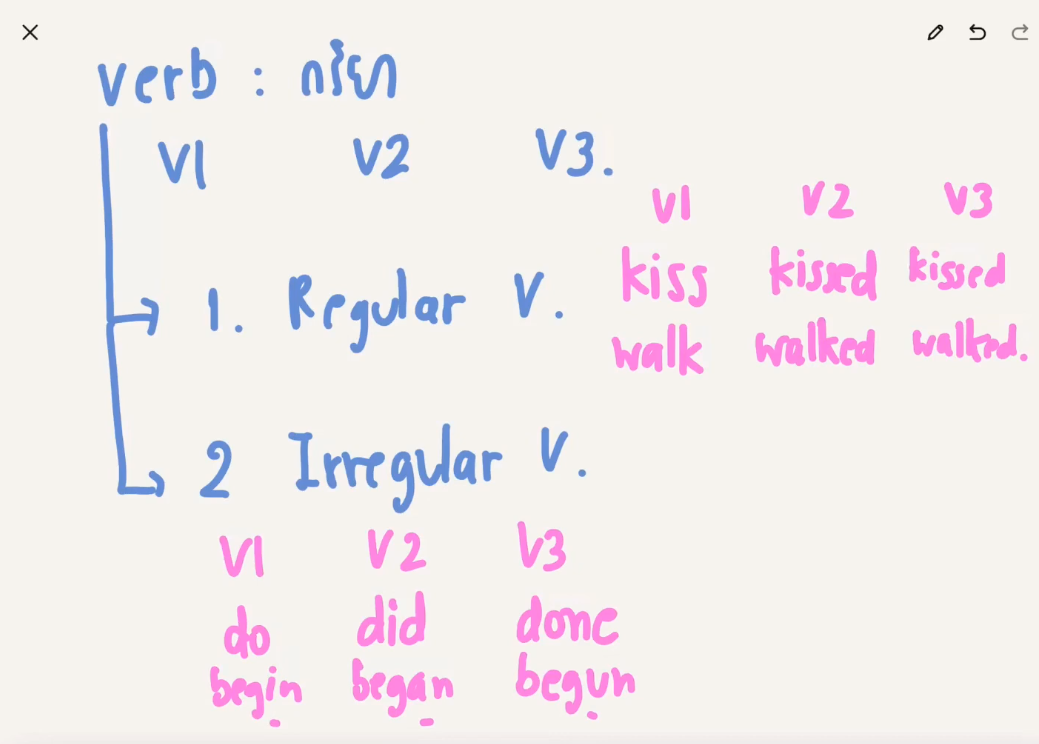 verb : กริยา
V1 V2 V3.
V1 V2 V3
kiss kissed kissed
1. Regular V.
walk walked walked.
2 Irregular V.
V1 V2 V3
do did done
begin began begun